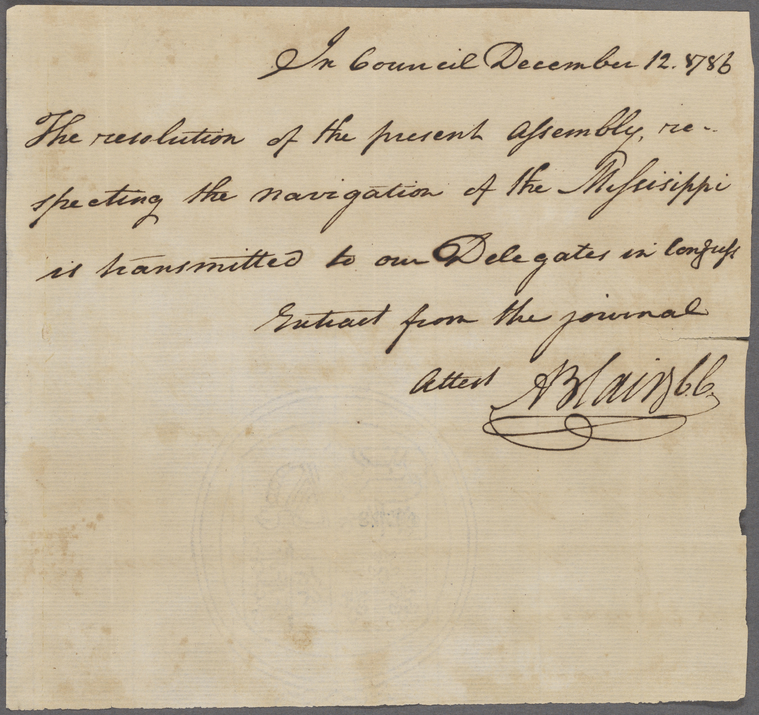 In Council December 12. 1786
The resolution of the present Assembly, re-
specting the navigation of the Missisippi
is transmitted to our Delegates in Congress
Extract from the journal
Attest ABlair CC